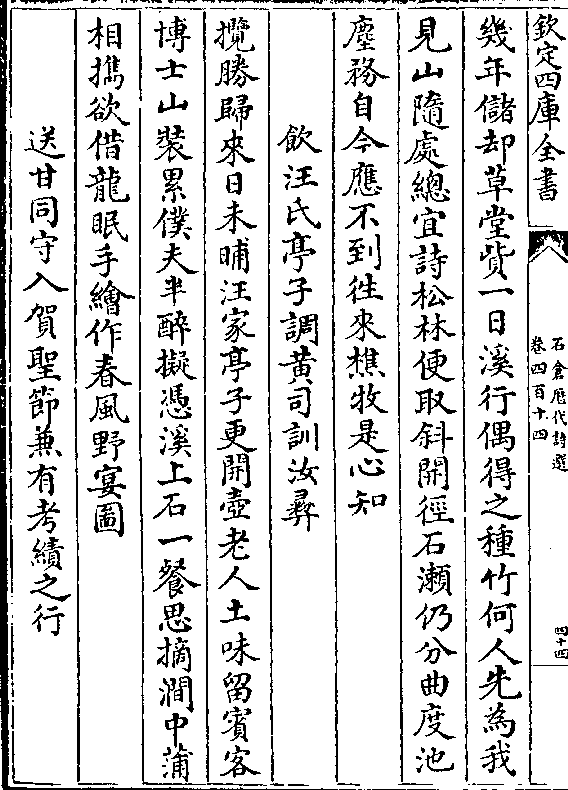 欽定四庫全書
石倉歷代詩選
卷四百十四
四十四
幾年儲却草堂貲一日溪行偶得之種竹何人先為我
見山隨處總宜詩松林便取斜開徑石瀬仍分曲度池
塵務自今應不到徃來樵牧是心知
飲汪氏亭子調黄司訓汝彛
攬勝歸來日未晡汪家亭子更開壺老人土味留賓客
博士山裝累僕夫半醉擬憑溪上石一餐思摘澗中蒲
相携欲借龍眠手繪作春風野宴圖
送甘同守入賀聖節兼有考績之行